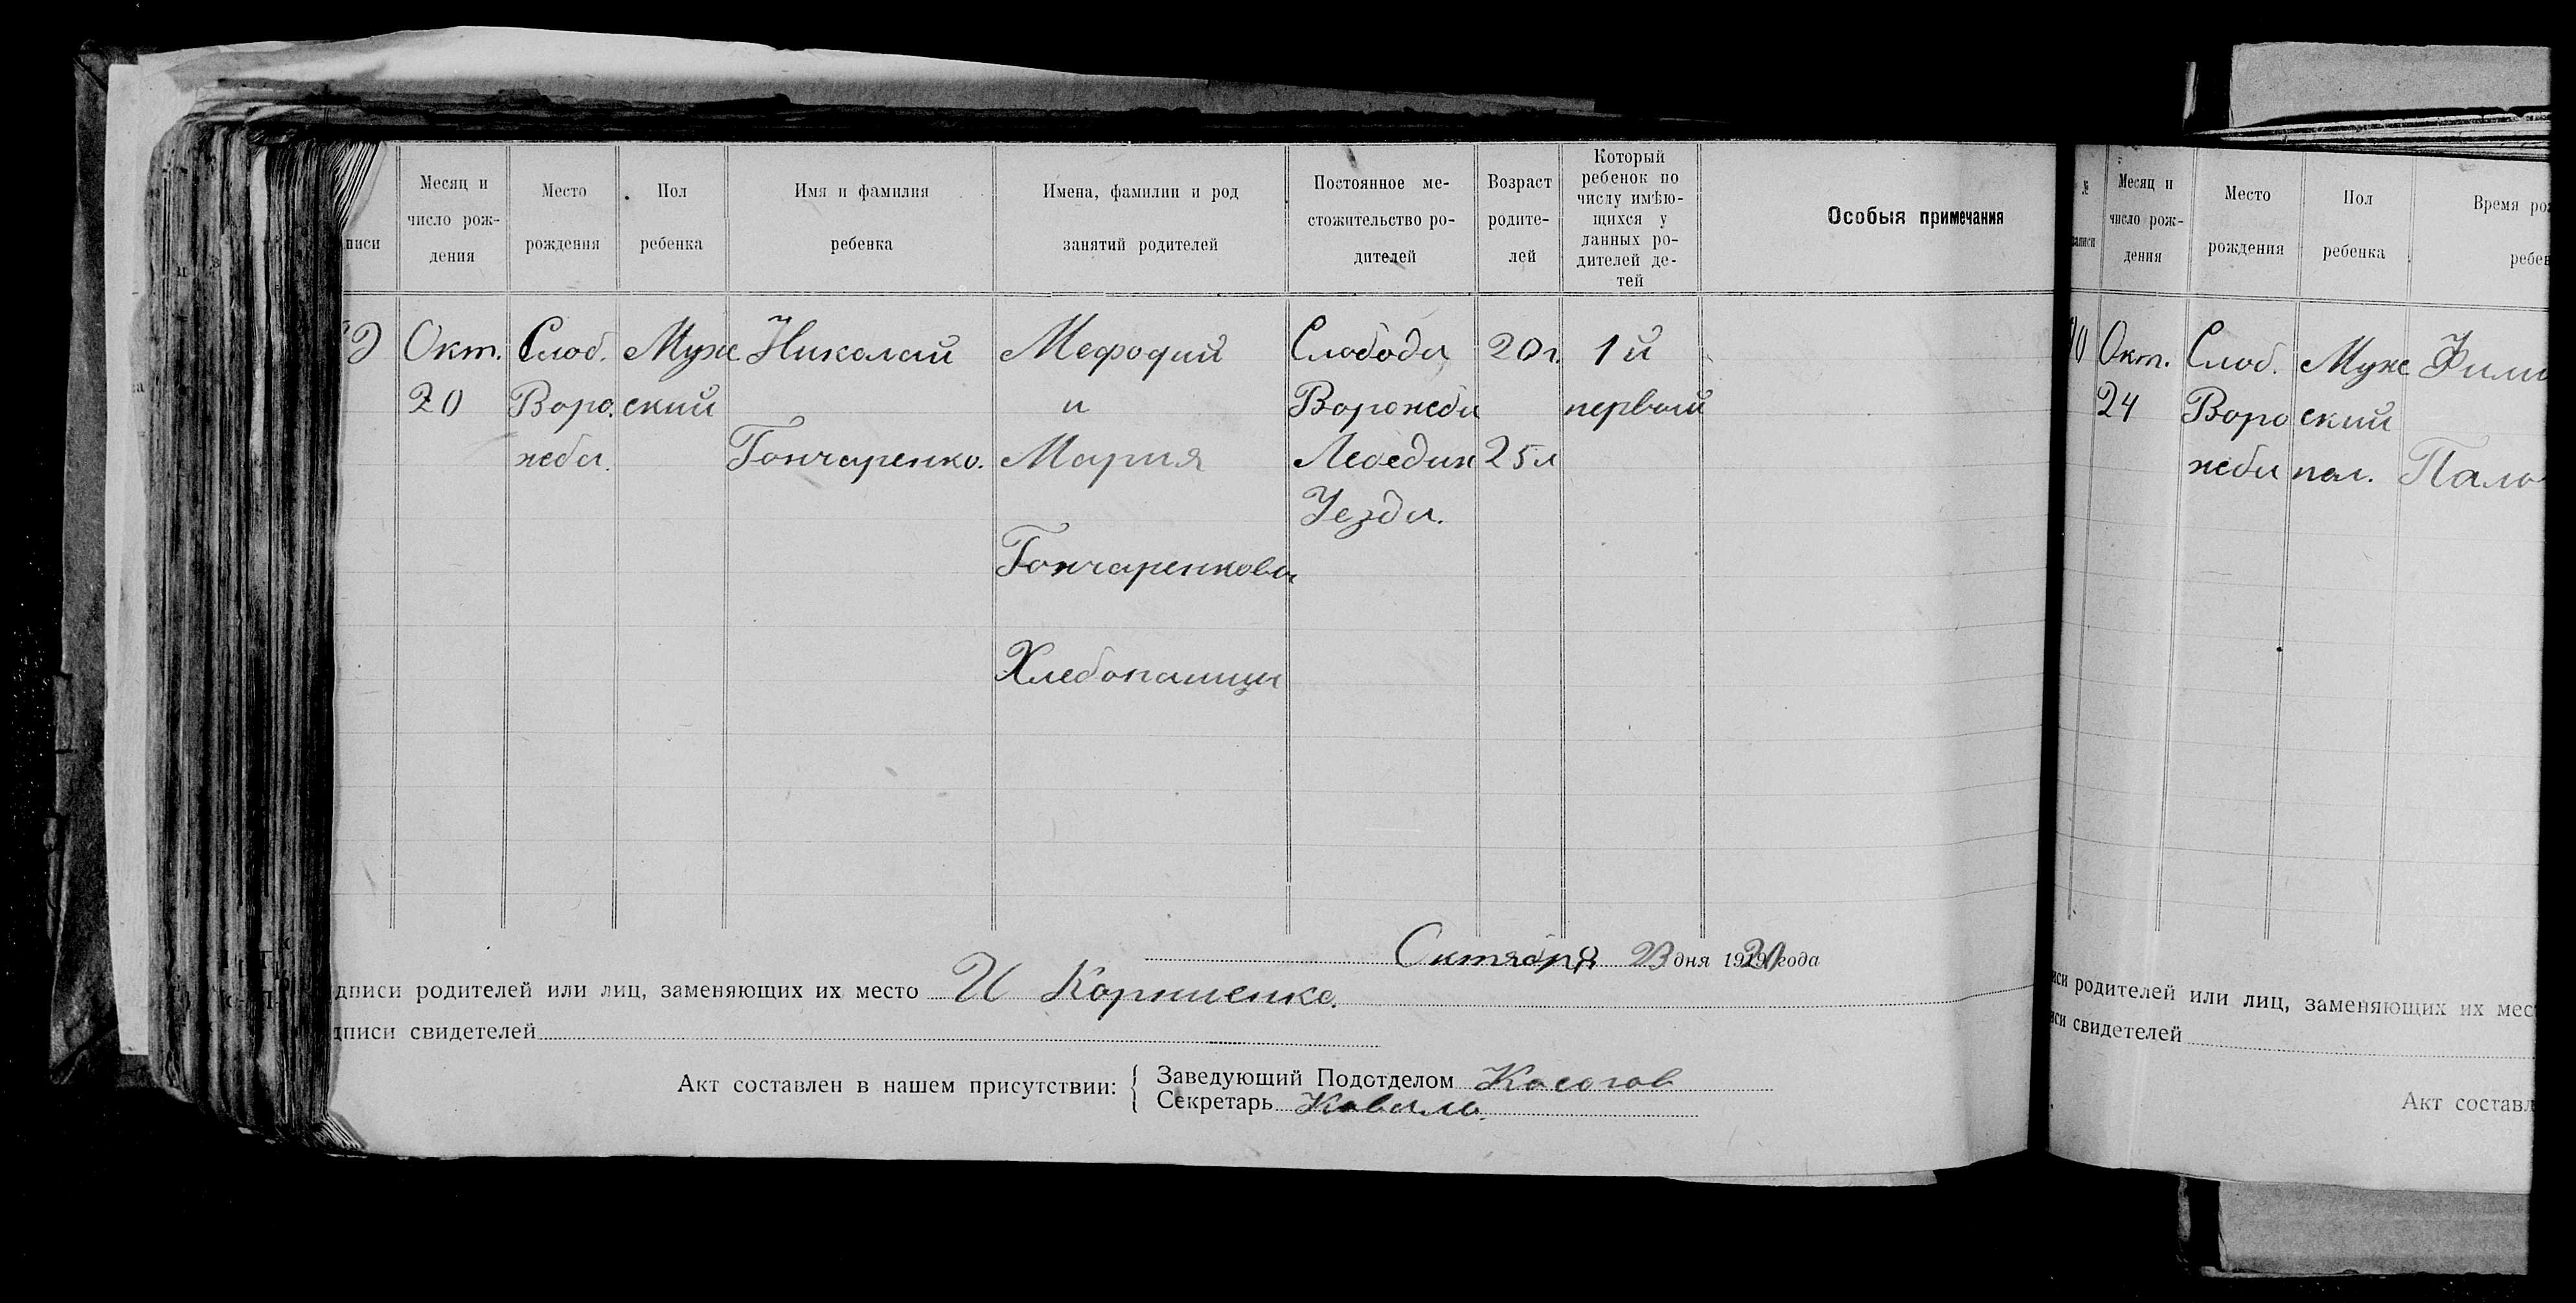 писи
Месяц и
число рож-
дения
Место
рождения
Пол
ребенка
Имя и фамилия
ребенка
Имена, фамилии и род
занятий родителей
Постоянное ме-
стожительство ро-
дителей
Возраст
родите-
лей
Который
ребенок по
числу имѣю-
щихся у
данных ро-
дителей де-
тей
Особыя примечания
Окт.
20
Слоб.
Воро.
жба.
Муже
ский
Николай
Гончаренко.
Мефодий
и
Мария
Гончаренковы
Хлебопашцы
Слобода
Ворожба
Лебедин
Уезда.
20 г.
25 л
1й
первый
Октября 23 дня 1920 года
дписи родителей или лиц, заменяющих их место И Корниенко.
дписи свидетелей
Акт составлен в нашем присутствии:
Заведующий Подотделом Косогов
Секретарь Коваль.
№
записи
Месяц и
число рож-
дения
Место
рождения
Пол
ребенка
Время ро
ребе
Окт.
24
Слоб.
Воро
жба
Муже
ский
пол.
Фили
Пало
иси родителей или лиц, заменяющих их мес
иси свидетелей
Акт составл